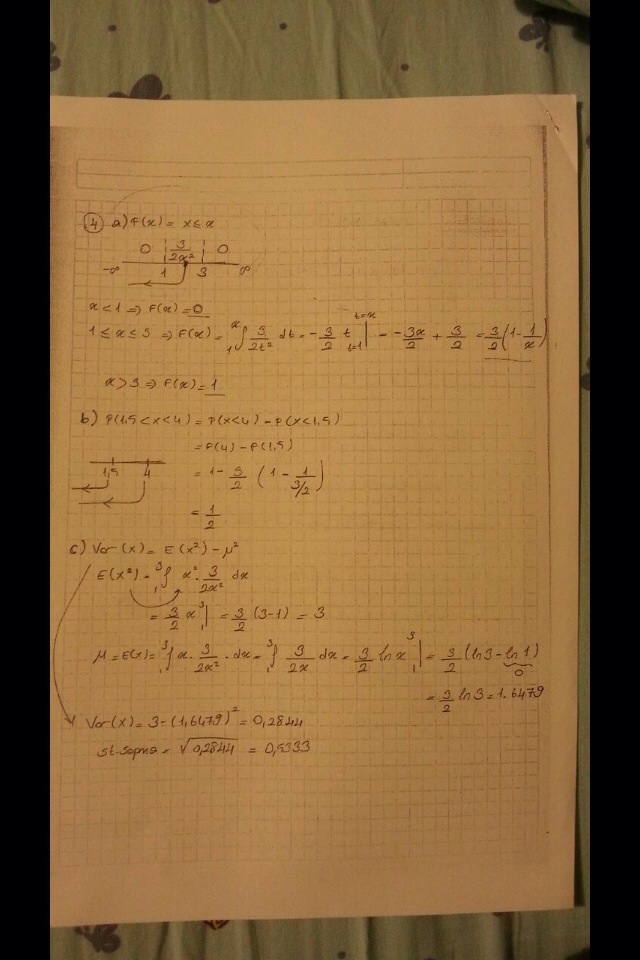 4 a) F(x) = x ≤ x
0 3/2x² 0
-∞ 1 3 ∞
x < 1 ⇒ F(x) = 0
1 ≤ x ≤ 3 ⇒ F(x) = ₁∫ˣ 3/2t² dt = -3/2 t |ₜ₌₁ᵗ⁼ˣ = -3x/2 + 3/2 = 3/2 (1 - 1/x)
x > 3 ⇒ F(x) = 1
b) P(1,5 < x < 4) = P(x < 4) - P(x < 1,5)
= F(4) - F(1,5)
1,5 4
= 1 - 3/2 (1 - 1/3/2)
= 1/2
c) Var(x) = E(x²) - μ²
E(x²) = ₁∫³ x² · 3/2x² dx
= 3/2 x |₁³ = 3/2 (3-1) = 3
μ = E(x) = ₁∫³ x · 3/2x² · dx = ₁∫³ 3/2x dx = 3/2 ln x |₁³ = 3/2 (ln3 - ln1)
0
= 3/2 ln 3 = 1.6479
Var(x) = 3 - (1,6479)² = 0,2844
st. sapma = √0,2844 = 0,5333